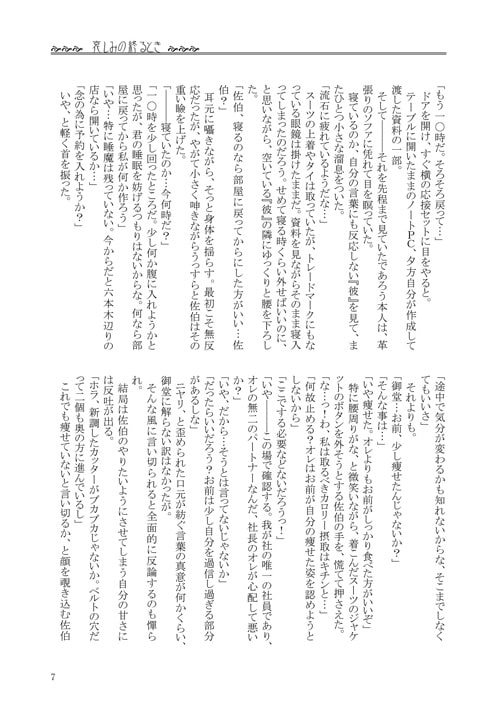 哀しみの終るとき
「もう一〇時だ。そろそろ戻って…」
ドアを開け、すぐ横の応接セットに目をやると。
テーブルに開いたままのノートＰＣ、夕方自分が作成して
渡した資料の一部。
そして――それを先程まで見ていたであろう本人は、革
張りのソファに凭れて目を瞑っていた。
寝ているのか、自分の言葉にも反応しない『彼』を見て、ま
たひとつ小さな溜息をついた。
「流石に疲れているようだな…」
スーツの上着やタイは取っていたが、トレードマークにもな
っている眼鏡は掛けたままだ。資料を見ながらそのまま寝入
ってしまったのだろう。せめて寝る時くらい外せばいいのに、
と思いながら、空いている『彼』の隣にゆっくりと腰を下ろし
た。
「佐伯、寝るのなら部屋に戻ってからにした方がいい…佐
伯？」
耳元に囁きながら、そっと身体を揺らす。最初こそ無反
応だったが、やがて小さく呻きながらうっすらと佐伯はその
重い瞼を上げた。
「――寝ていたのか…今何時だ？」
「一〇時を少し回ったところだ。少し何か腹に入れようかと
思ったが、君の睡眠を妨げるつもりはないからな。何なら部
屋に戻ってから私が何か作ろう」
「いや…特に睡魔は残っていない。今からだと六本木辺りの
店なら開いているか…」
「念の為に予約を入れようか？」
いや、と軽く首を振った。
「途中で気分が変わるかも知れないからな、そこまでしなく
てもいいさ」
それよりも。
「御堂…お前、少し痩せたんじゃないか？」
「そんな事は…」
「いや痩せた。オレよりもお前がしっかり食べた方がいいぞ」
特に腰周りがな、と微笑いながら、着こんだスーツのジャケ
ットのボタンを外そうとする佐伯の手を、慌てて押さえた。
「な…っ？わ、私は取るべきカロリー摂取はキチンと…」
「何故止める？オレはお前が自分の痩せた姿を認めようと
しないから」
「ここでする必要などないだろうっ！」
「いや――この場で確認する。我が社の唯一の社員であり、
オレの無二のパートナーなんだ、社長のオレが心配して悪い
か？」
「いや、だから…そうとは言ってないじゃないか」
「だったらいいだろう？お前は少し自分を過信し過ぎる部分
があるしな」
ニヤリ、と歪められた口元が紡ぐ言葉の真意が何かくらい、
御堂に解らない訳はなかったが。
そんな風に言い切られると全面的に反論するのも憚ら
れ。
結局は佐伯のやりたいようにさせてしまう自分の甘さに
は反吐が出る。
「ホラ、新調したカッターがブカブカじゃないか。ベルトの穴だ
って二個も奥の方に進んでいるし」
これでも痩せていないと言い切るか、と顔を覗き込む佐伯
7